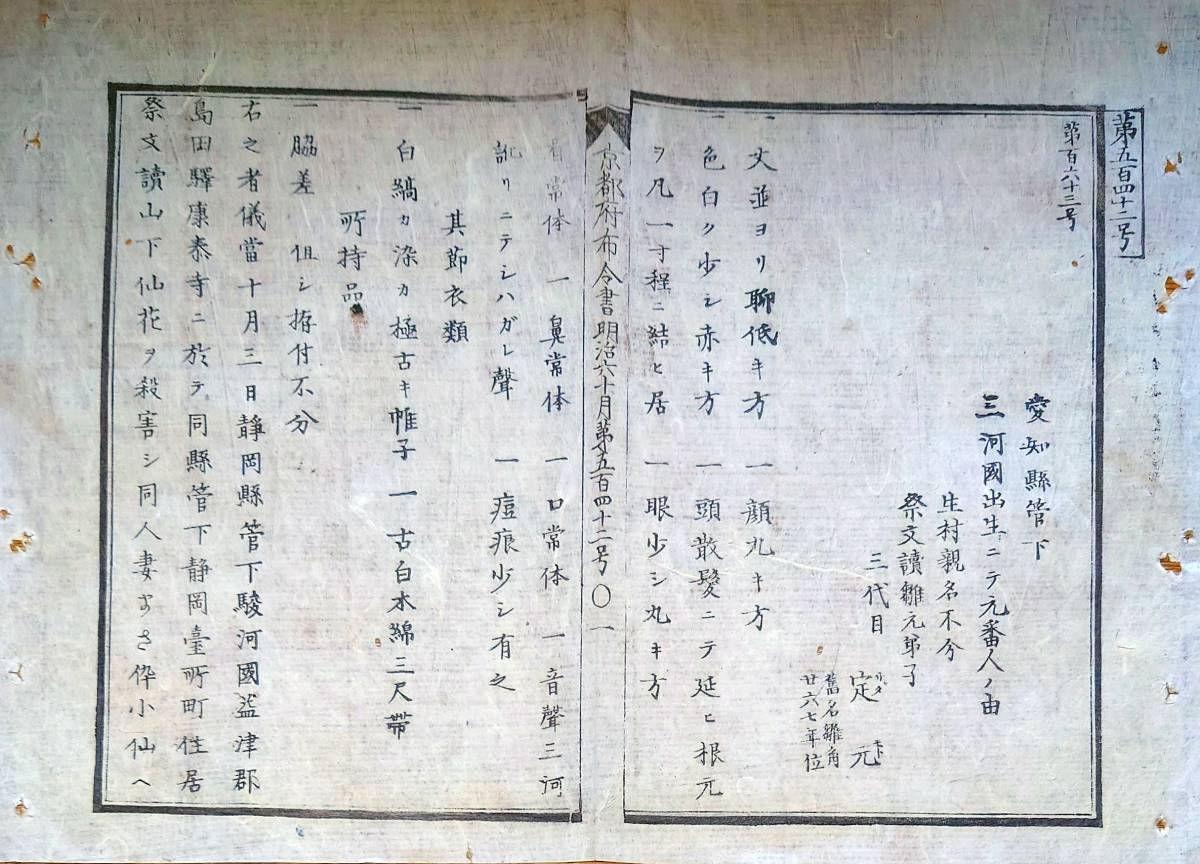 第五百四十二号
第百六十三号
愛知縣管下
三河國出生ニテ元番人ノ由
生村親名不分
祭文讀雛元弟子
三代目
定元
舊名雛角
廿六七年位
一 丈並ヨリ聊低キ方 一 顔丸キ方
一 色白ク少シ赤キ方 一 頭散髪ニテ延ヒ根元
ヲ凡一寸程ニ結ヒ居 一 眼少シ丸キ方
京都府布令書明治六十月第五百四十二号〇一
眉常体 一 鼻常体 一 口常体 一 音聲三河
訛リニテシハガレ聲 一 痘痕少シ有之
其節衣類
一 白縞カ染カ極古キ帷子 一 古白木綿三尺帯
所持品
一 脇差 但シ拵付不分
右之者儀當十月三日靜岡縣管下駿河國益津郡
島田驛康泰寺ニ於テ同縣管下静岡臺所町住居
祭文讀山下仙花ヲ殺害シ同人妻まさ倅小仙ヘ